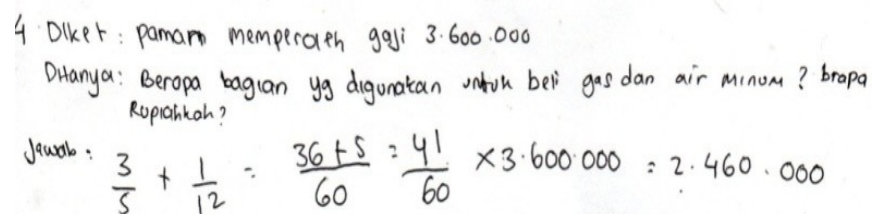 4 Diket : paman memperoleh gaji 3.600.000
Ditanya : Berapa bagian yg digunakan untuk beli gas dan air minum ? brapa
Rupiahkah ?
Jawab : 3/5 + 1/12 = 36+5/60 = 41/60 × 3.600.000 = 2.460.000